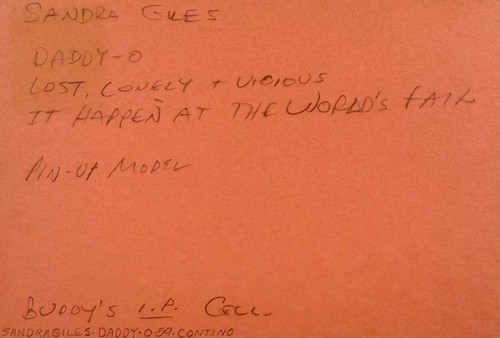 SANDRA GILES
DADDY-O
LOST, LONELY + VICIOUS
IT HAPPEN AT THE WORLD'S FAIR
PIN-UP MODEL
BUDDY'S I.P. COLL.
SANDRAGILES.DADDY-O.59.CONTINO